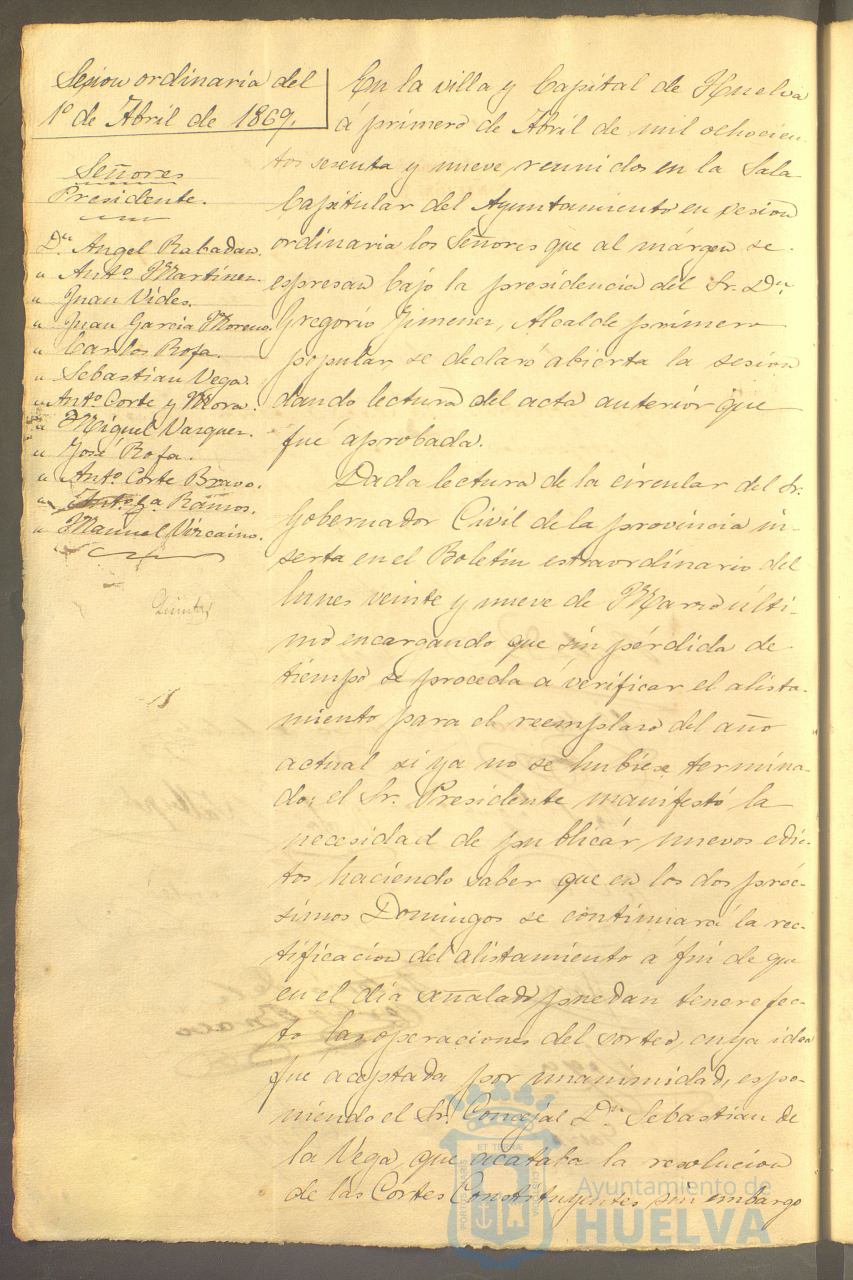 Sesion ordinaria del
1º de Abril de 1869.
Señores
Presidente.
Dn. Angel Rabadan.
" Antº. Martinez.
" Juan Vides.
" Juan Garcia Moreno.
" Carlos Rofa.
" Sebastian Vega.
" Antº. Corte y Mora.
" Miguel Vazquez.
" José Rofa.
" Antº. Corte Bravo.
" Antº. Gª. Ramos.
" Manuel Vizcaino.
Quintas
En la villa y Capital de Huelva
á primero de Abril de mil ochocien-
tos sesenta y nueve reunidos en la Sala
Capitular del Ayuntamiento en sesion
ordinaria los Señores que al márgen se
espresan bajo la presidencia del Sr. Dn.
Gregorio Jimenez, Alcalde primero
popular se declaró abierta la sesion
dando lectura del acta anterior que
fué aprobada.
Dada lectura de la circular del Sr.
Gobernador Civil de la provincia in-
serta en el Boletin estraordinario del
lunes veinte y nueve de Marzo últi-
mo encargando que sin pérdida de
tiempo se proceda á verificar el alista-
miento para el reemplazo del año
actual si ya no se hubiese termina-
do; el Sr. Presidente manifestó la
necesidad de publicar nuevos edic-
tos haciendo saber que en los dos próc-
simos Domingos se continuará la rec-
tificacion del alistamiento á fin de que
en el dia señalado puedan tener efec-
to las operaciones del sorteo, cuya idea
fue aceptada por unanimidad, espo-
niendo el Sr. Concejal Dn. Sebastian de
la Vega, que acataba la resolucion
de las Cortes Constituyentes sin embargo
Ayuntamiento de
HUELVA